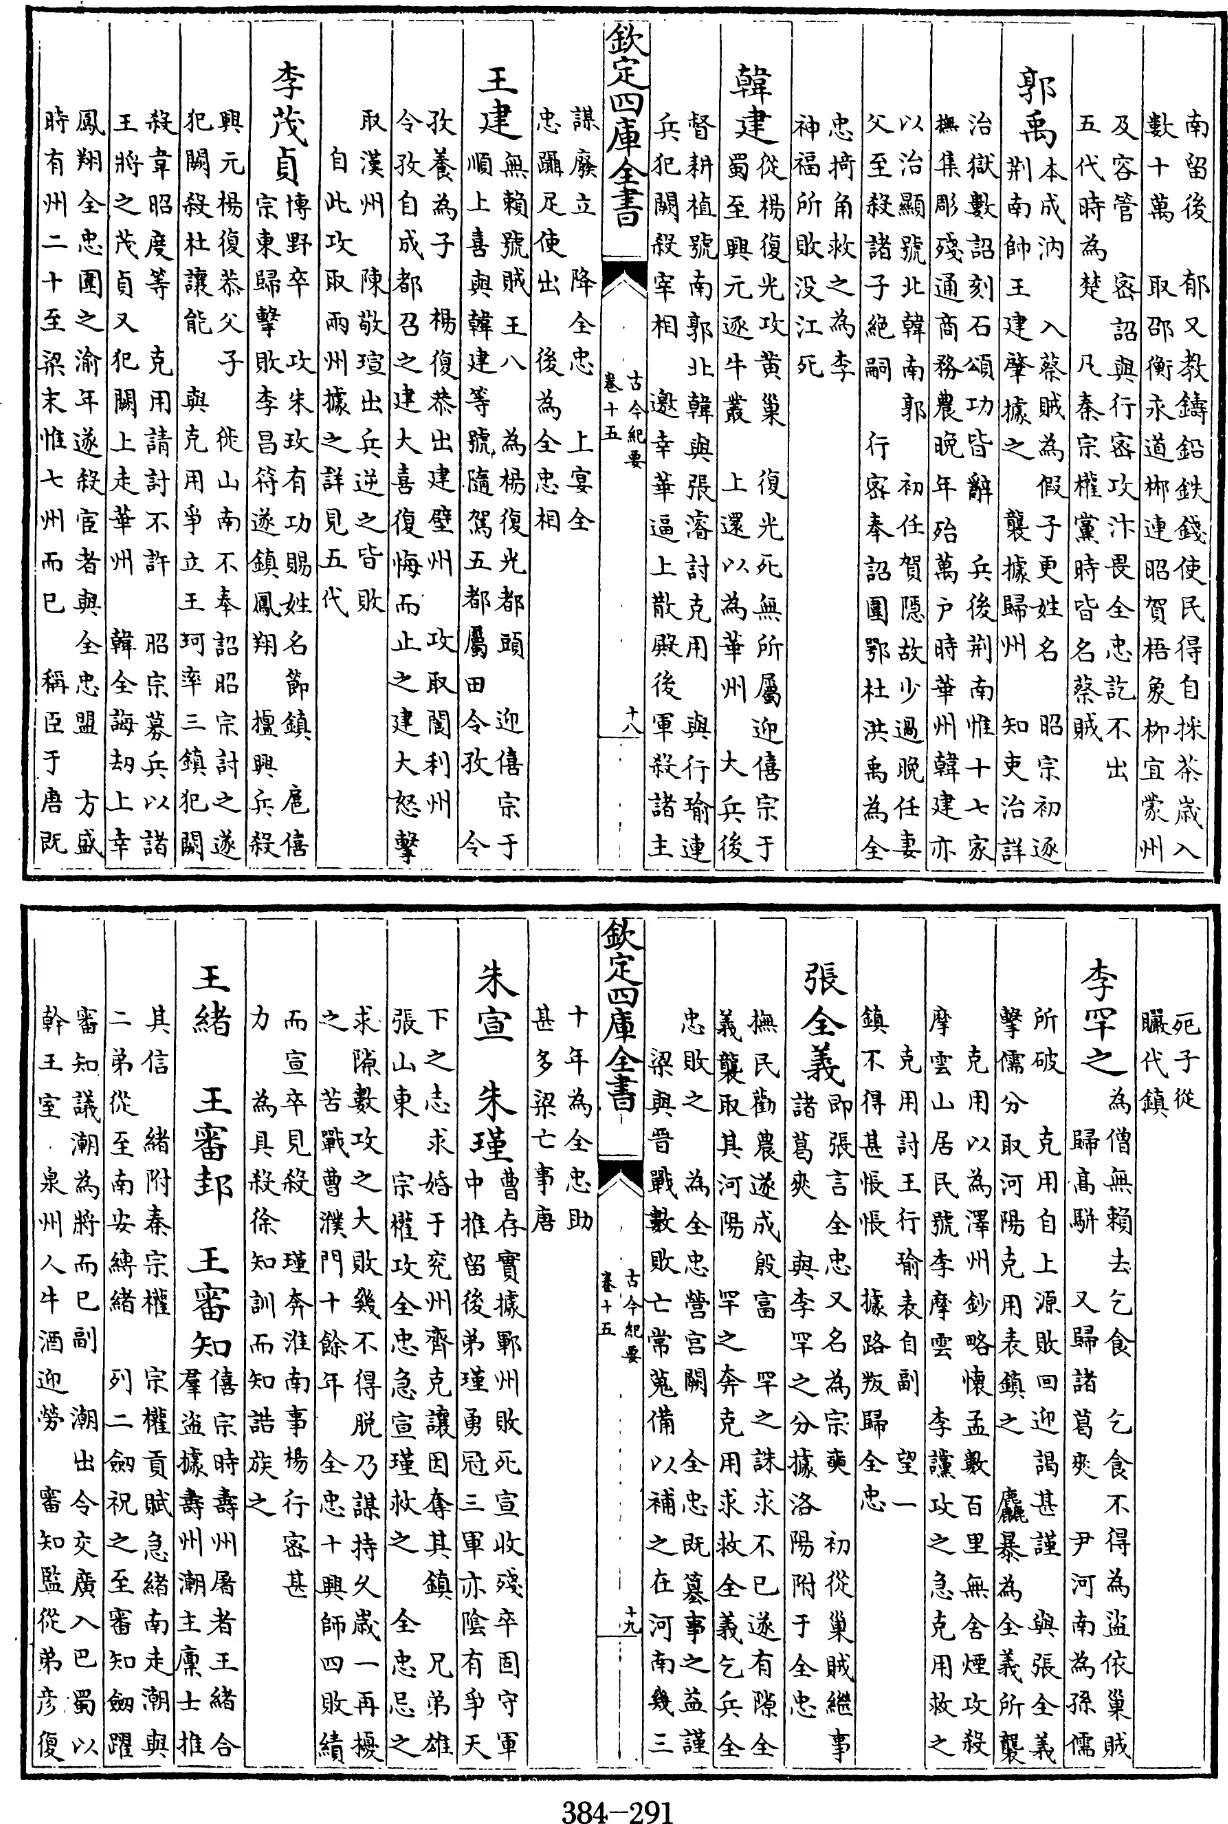 南留後　郁又教鑄鉛鉄錢使民得自採茶歲入
數十萬　取邵衡永道郴連昭賀梧象柳宜蒙州
及容管　密詔與行密攻汴畏全忠訖不出
五代時為楚　凡秦宗權黨時皆名蔡賊
郭禹　本成汭　入蔡賊為假子更姓名　昭宗初逐
荆南帥王建肇據之　襲據歸州　知吏治詳
治獄數詔刻石頌功皆辭　兵後荆南惟十七家
撫集彫殘通商務農晚年殆萬户時華州韓建亦
以治顯號北韓南郭　初任賀隠故少過晚任妻
父至殺諸子絶嗣　行密奉詔圍鄂杜洪禹為全
忠掎角救之為李
神福所敗没江死
韓建　從楊復光攻黄巢　復光死無所屬迎僖宗于
蜀至興元逐牛叢　上還以為華州　大兵後
督耕植號南郭北韓與張濬討克用　與行瑜連
兵犯闕殺宰相　邀幸華逼上散殿後軍殺諸主
欽定四庫全書
古今紀要
卷十五
十八
謀廢立　降全忠　上宴全
忠躡足使出　後為全忠相
王建　無賴號賊王八　為楊復光都頭　迎僖宗于
順上喜與韓建等號隨駕五都屬田令孜　令
孜養為子　楊復恭出建壁州　攻取閬利州
令孜自成都召之建大喜復悔而止之建大怒擊
取漢州　陳敬瑄出兵逆之皆敗
自此攻取兩州據之詳見五代
李茂貞　博野卒　攻朱玫有功賜姓名節鎮　扈僖
宗東歸擊敗李昌符遂鎮鳳翔　擅興兵殺
興元楊復恭父子　徙山南不奉詔昭宗討之遂
犯闕殺杜讓能　與克用爭立王珂率三鎮犯闕
殺韋昭度等　克用請討不許　昭宗募兵以諸
王將之茂貞又犯闕上走華州　韓全誨刼上幸
鳳翔全忠圍之渝年遂殺宦者與全忠盟　方盛
時有州二十至梁末惟七州而已　稱臣于唐既
死子從
曮代鎮
李罕之　為僧無賴去乞食　乞食不得為盜依巢賊
歸髙駢　又歸諸葛爽　尹河南為孫儒
所破　克用自上源敗回迎謁甚謹　與張全義
擊儒分取河陽克用表鎮之　麤暴為全義所襲
克用以為澤州鈔略懷孟數百里無舍煙攻殺
摩雲山居民號李摩雲　李讜攻之急克用救之
克用討王行瑜表自副　望一
鎮不得甚悵悵　據路叛歸全忠
張全義　即張言全忠又名為宗奭　初從巢賊繼事
諸葛爽　與李罕之分據洛陽附于全忠
撫民勸農遂成殷富　罕之誅求不已遂有隙全
義襲取其河陽　罕之奔克用求救全義乞兵全
忠敗之　為全忠營宫闕　全忠既簒事之益謹
梁與晉戰數敗亡常蒐備以補之在河南幾三
欽定四庫全書
古今紀要
卷十五
十九
十年為全忠助
甚多梁亡事唐
朱宣　朱瑾　曹存實據鄆州敗死宣收殘卒固守軍
中推留後弟瑾勇冠三軍亦陰有爭天
下之志求婚于兖州齊克讓因奪其鎮　兄弟雄
張山東　宗權攻全忠急宣瑾救之　全忠忌之
求隙數攻之大敗幾不得脱乃謀持久歲一再擾
之　苦戰曹濮門十餘年　全忠十興師四敗績
而宣卒見殺　瑾奔淮南事楊行密甚
力　為具殺徐知訓而知誥族之
王緒　王審邽　王審知　僖宗時壽州屠者王緒合
羣盜據壽州潮主廪士推
其信　緒附秦宗權　宗權責賦急緒南走潮與
二弟從至南安縛緒　列二劒祝之至審知劒躍
審知議潮為將而已副　潮出令交廣入巴蜀以
幹王室　泉州人牛酒迎勞　審知監從弟彦復
384—291